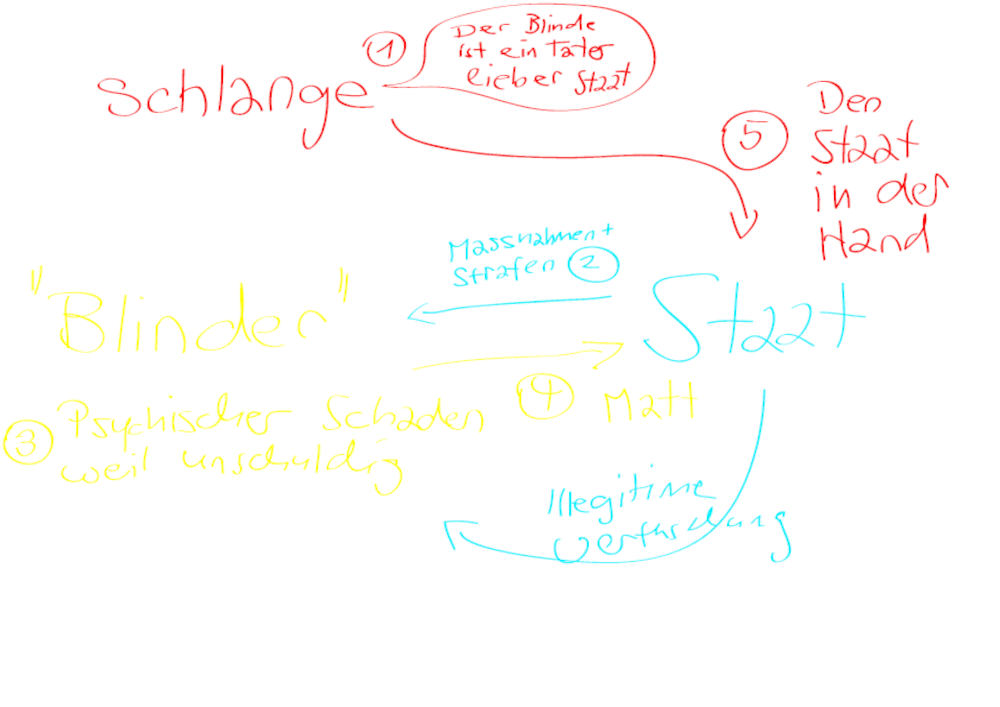 1
Der Blinde
ist ein Täter
lieber Staat
Schlange
5
Den
Staat
in der
Hand
Massnahmen +
Strafen 2
"Blinder"
Staat
3 Psychischer Schaden
weil unschuldig
4 Matt
Illegitime
Vertuschung